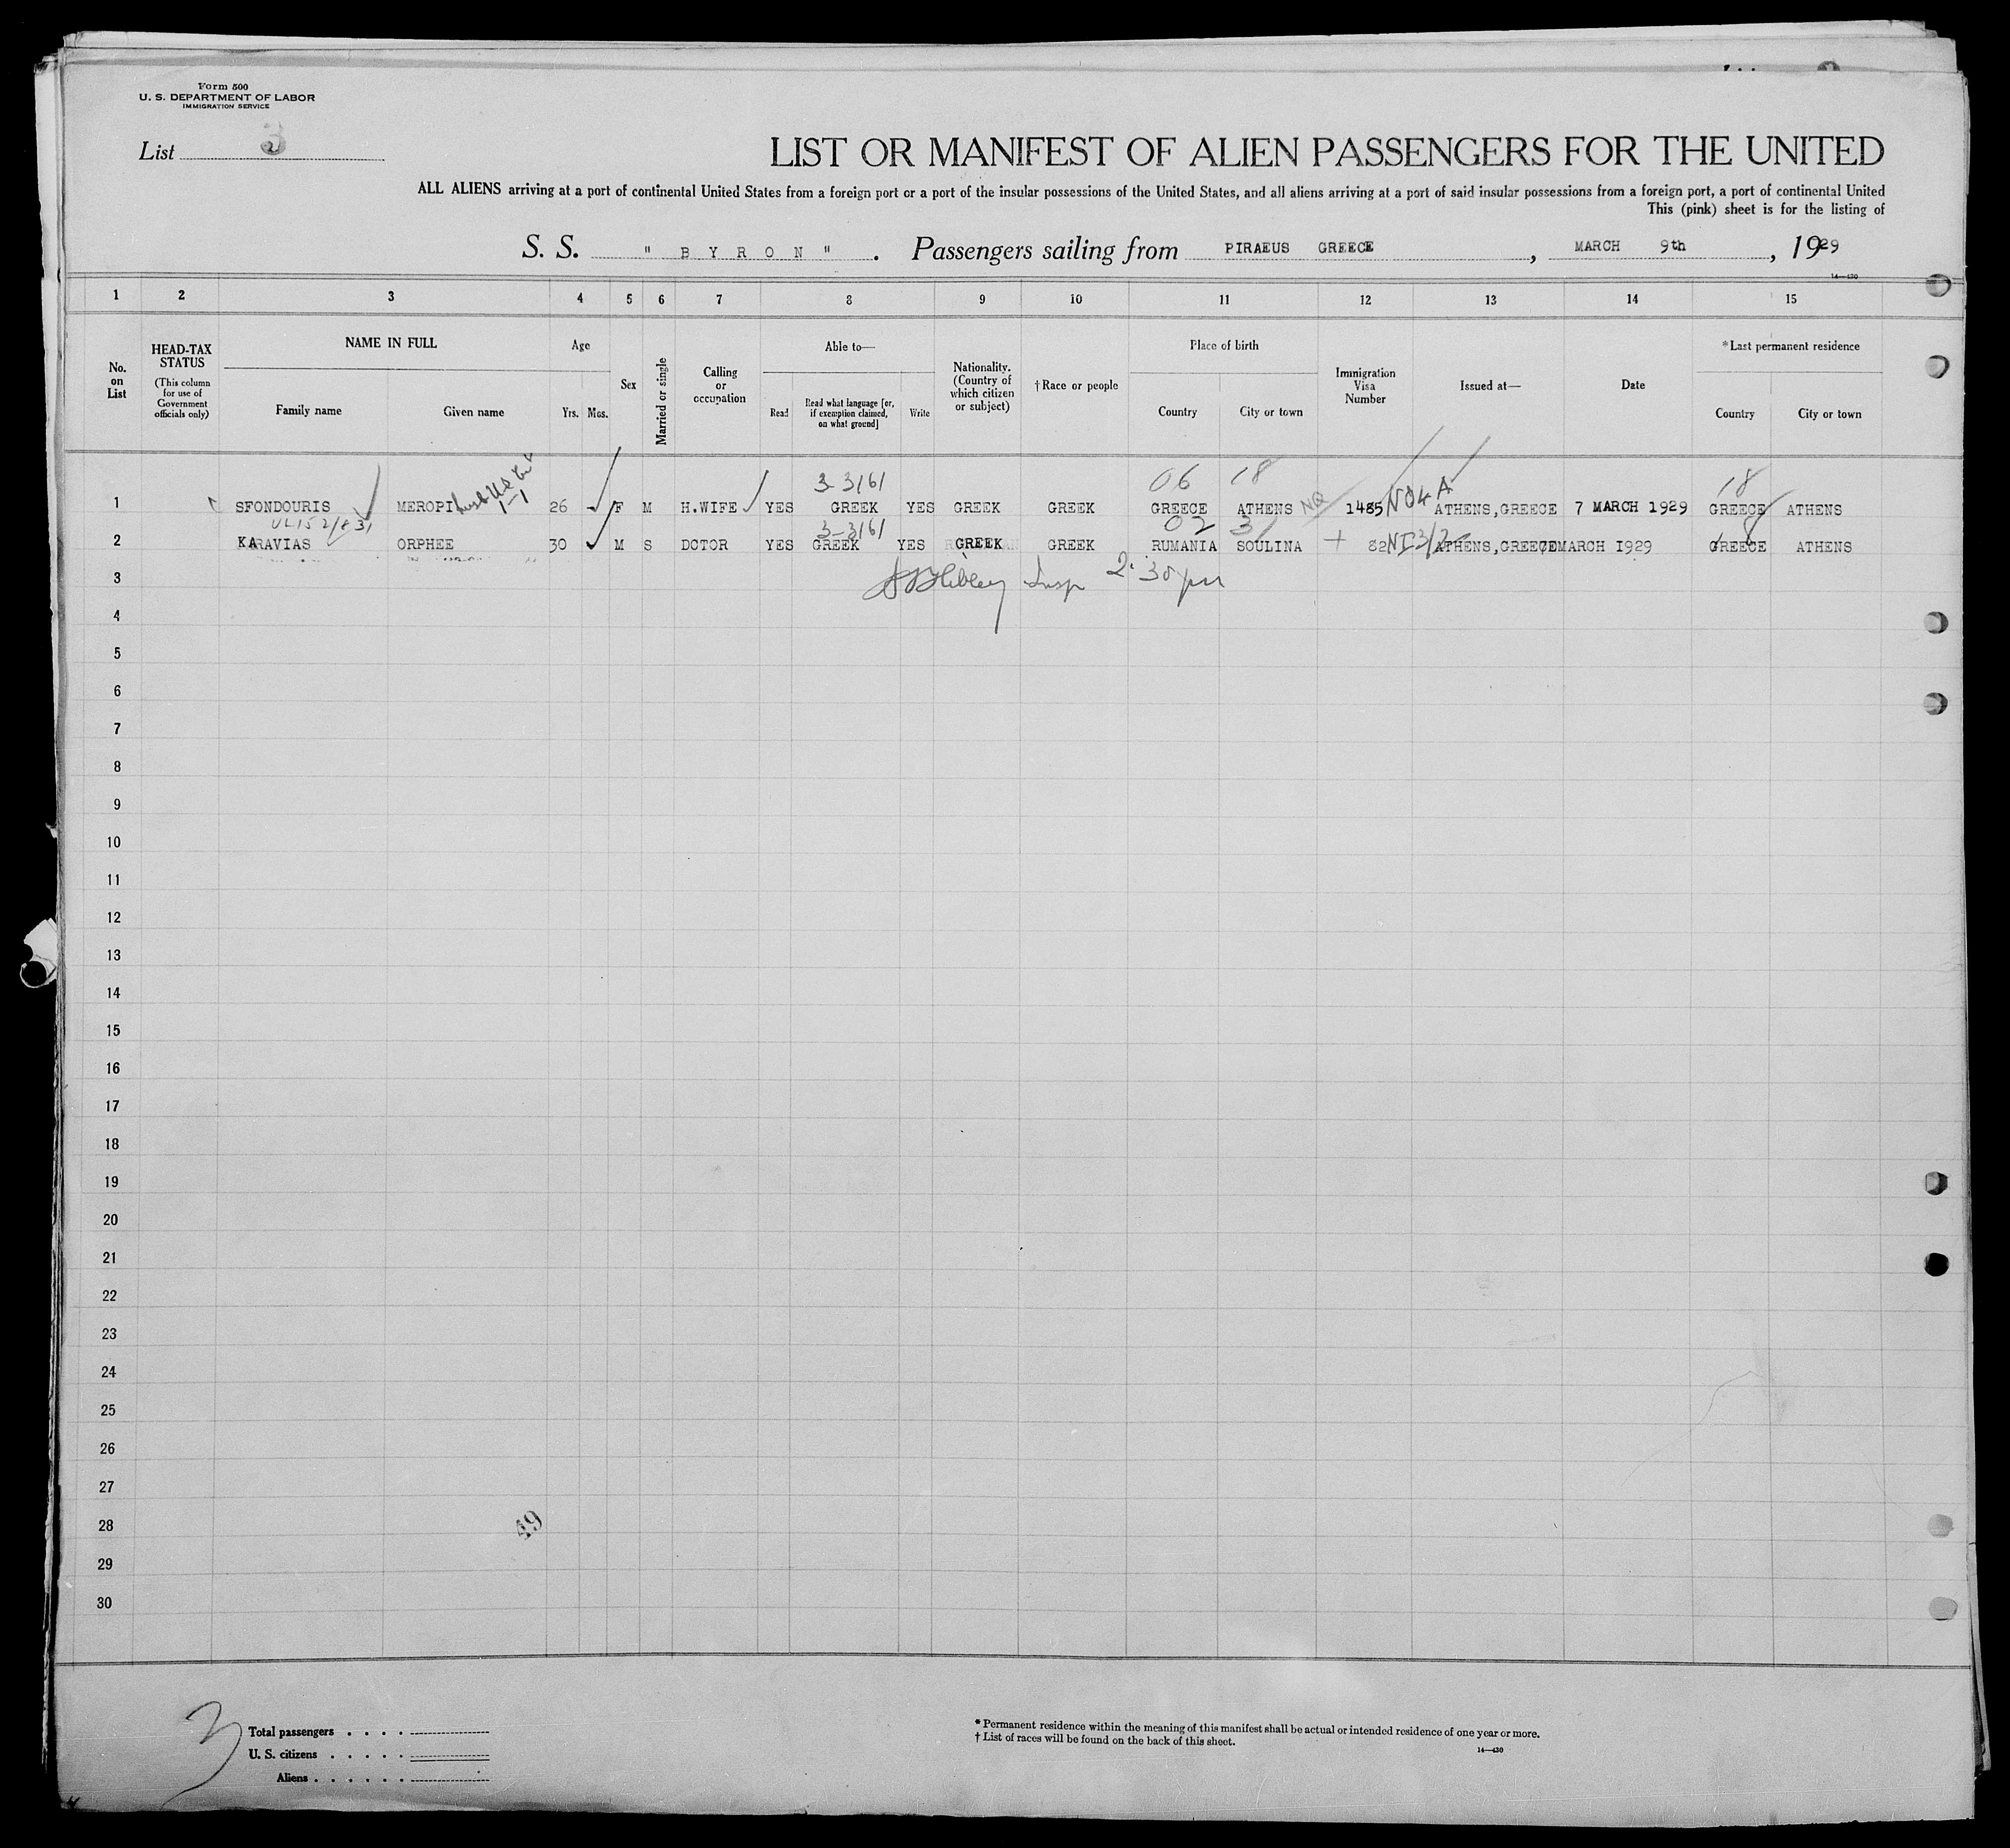 Form 500
U. S. DEPARTMENT OF LABOR
IMMIGRATION SERVICE
List 3
LIST OR MANIFEST OF ALIEN PASSENGERS FOR THE UNITED
ALL ALIENS arriving at a port of continental United States from a foreign port or a port of the insular possessions of the United States, and all aliens arriving at a port of said insular possessions from a foreign port, a port of continental United
This (pink) sheet is for the listing of
S. S. " B Y R O N " . Passengers sailing from PIRAEUS GREECE , MARCH 9th , 1929
14—430
1 2 3 4 5 6 7 8 9 10 11 12 13 14 15
No. on List
HEAD-TAX STATUS
(This column for use of Government officials only)
NAME IN FULL
Family name Given name
Age
Yrs. Mos.
Sex
Married or single
Calling or occupation
Able to—
Read
Read what language [or, if exemption claimed, on what ground]
Write
Nationality. (Country of which citizen or subject)
†Race or people
Place of birth
Country City or town
Immigration Visa Number
Issued at—
Date
*Last permanent residence
Country City or town
3-3161 06 18 18
1 SFONDOURIS MEROPI 26 F M H.WIFE YES GREEK YES GREEK GREEK GREECE ATHENS NQ 1485 NO4A ATHENS,GREECE 7 MARCH 1929 GREECE ATHENS
3-3161 02 31 18
2 KARAVIAS ORPHEE 30 M S DCTOR YES GREEK YES GREEK GREEK RUMANIA SOULINA 82 ATHENS,GREECE MARCH 1929 GREECE ATHENS
3 Insp 2:30 pm
4
5
6
7
8
9
10
11
12
13
14
15
16
17
18
19
20
21
22
23
24
25
26
27
28
49
29
30
3
Total passengers . . . .
U. S. citizens . . . . .
Aliens . . . . . .
* Permanent residence within the meaning of this manifest shall be actual or intended residence of one year or more.
† List of races will be found on the back of this sheet.
14—430